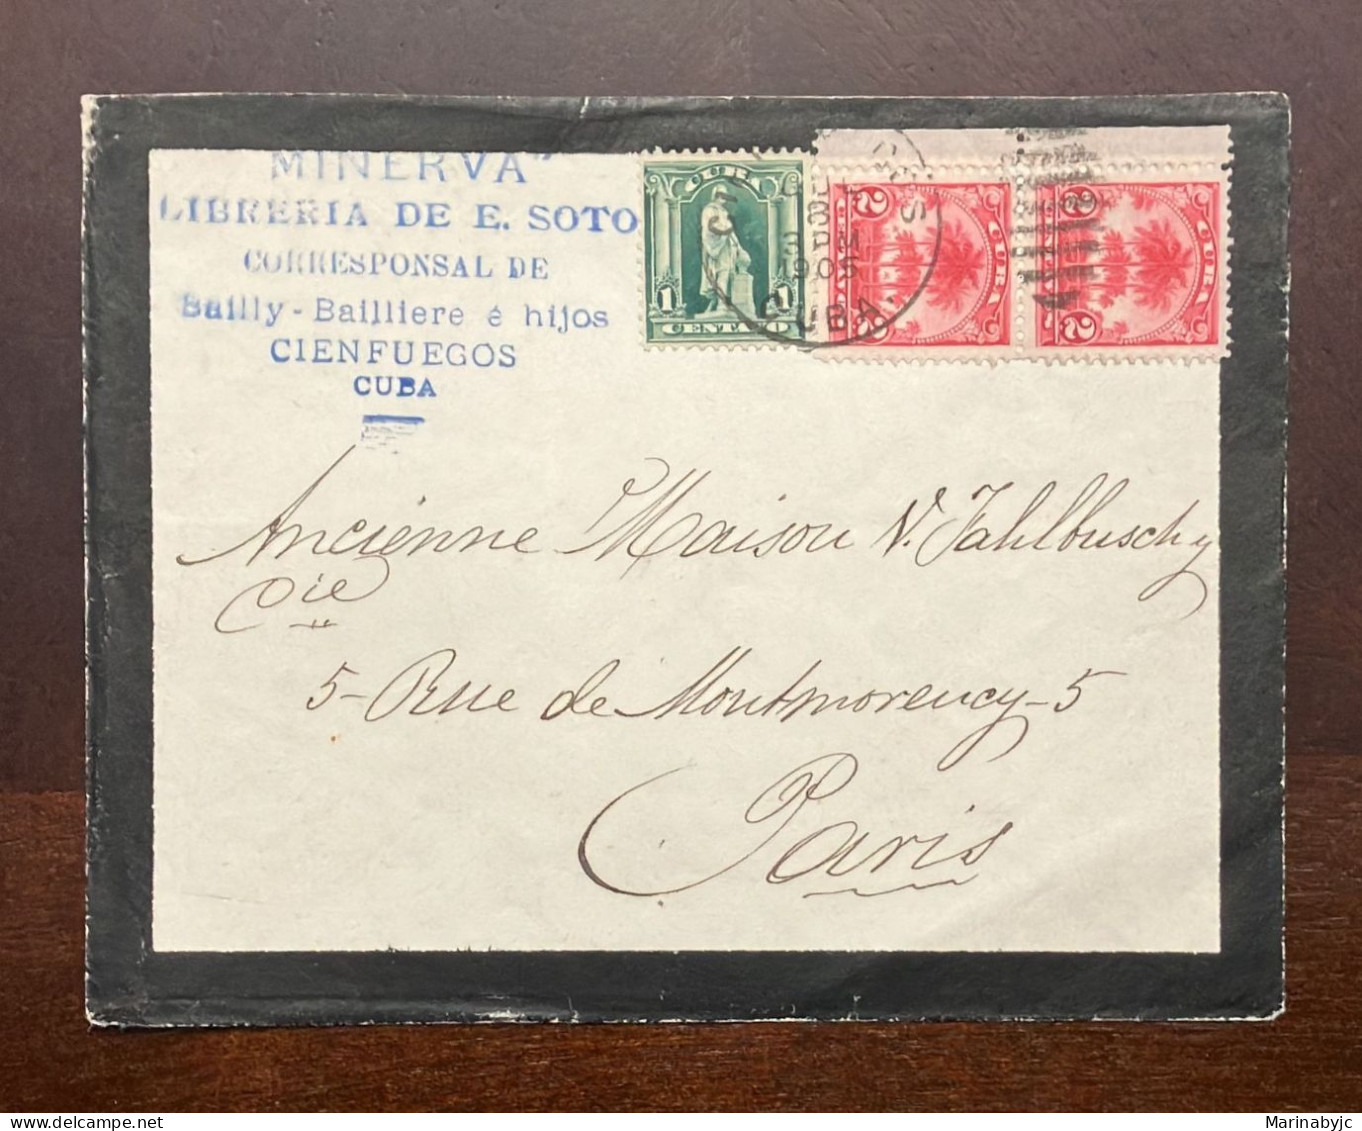 MINERVA"
LIBRERIA DE E. SOTO
CORRESPONSAL DE
Bailly - Bailliere é hijos
CIENFUEGOS
CUBA
CUBA
1 1
CENTAVO
CUBA
2 2
CUBA
2 2
3 PM
1905
CUBA.
Ancienne Maison V. Fahlbusch y
Cie
5 - Rue de Montmorency - 5
Paris
Marinabyjc